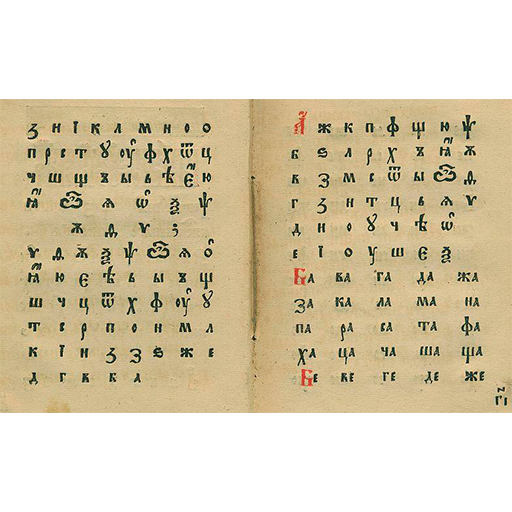 ꙁ и ї к л м н о ѻ
п р с т ꙋ оу ф х ѿ ц
ч ш щ ъ ы ь ѣ є ю
ꙗ ѽ ѧ ѡ ѯ ѱ
ѫ ѳ ѵ ;
ѵ ѳ ѫ ѯ ѱ ѽ ѧ ѡ
ꙗ ю є ѣ ь ы ъ щ
ш ч ц ѿ х ф оу ꙋ
т с р п о н м л
к ї и ꙁ з ѕ ж е
д г в б а
А ж к п ф щ ю ѱ
б ѕ л р х ъ ꙗ ѫ
в з м с ѿ ы ѽ ѳ
г ꙁ н т ц ь ѧ ѵ
д и о ꙋ ч ѣ ѡ
е ї о оу ш є ѯ
Ба ва га да жа
за ка ла ма на
па ра са та фа
ха ца ча ша ща
Бе ве ге де же
гі